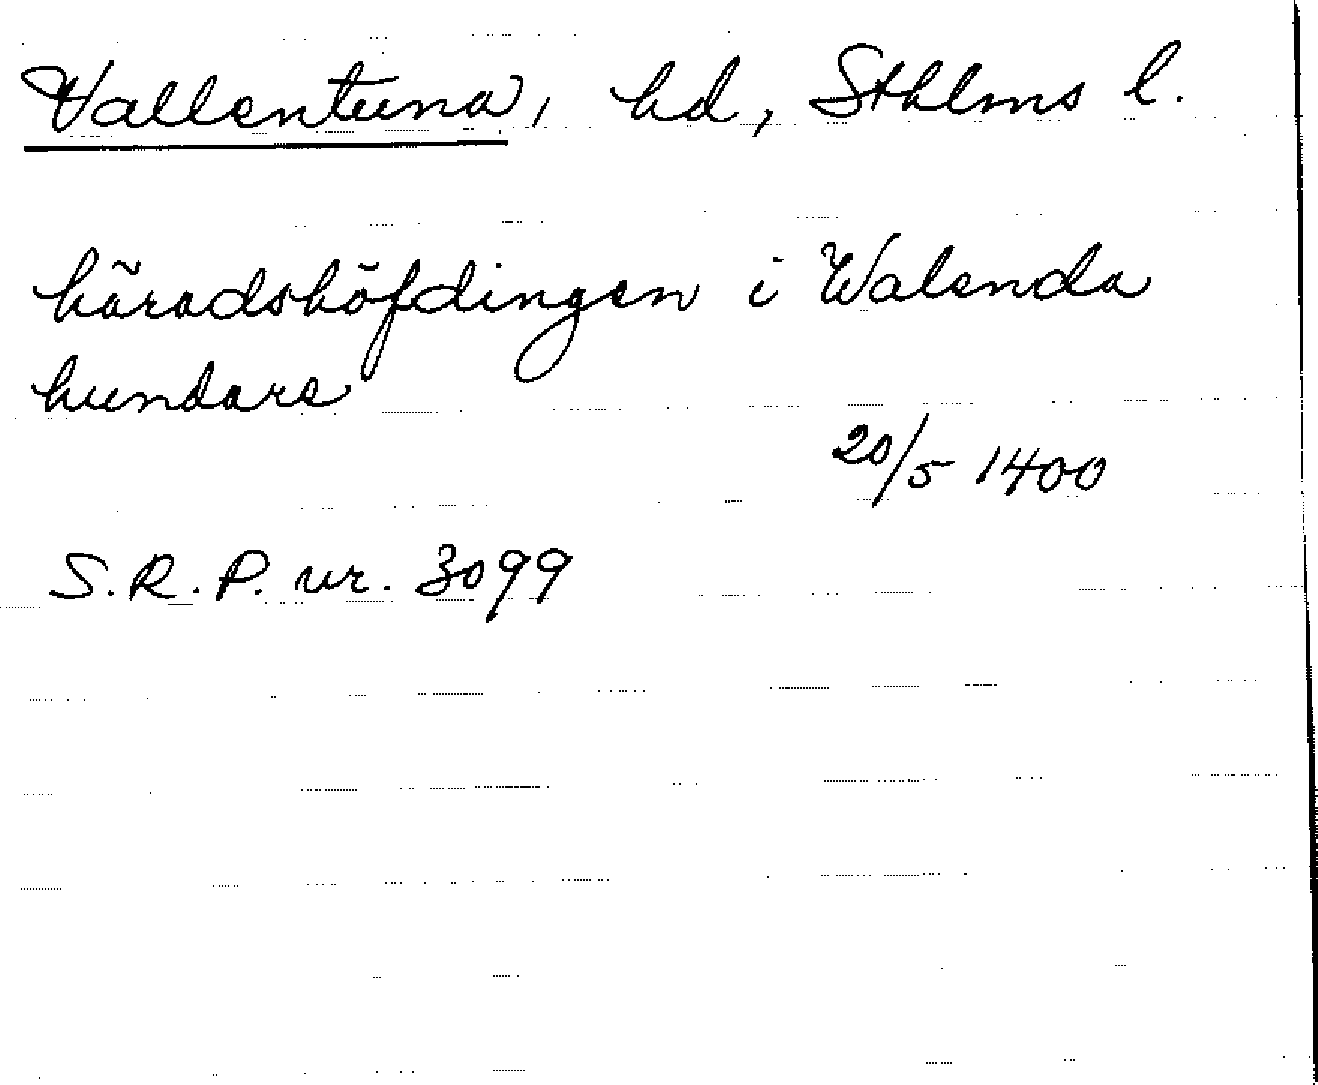 Vallentuna, hd, Sthlms l.
häradshöfdingen i Walenda
hundare
20/5 1400
S.R.P. nr. 3099